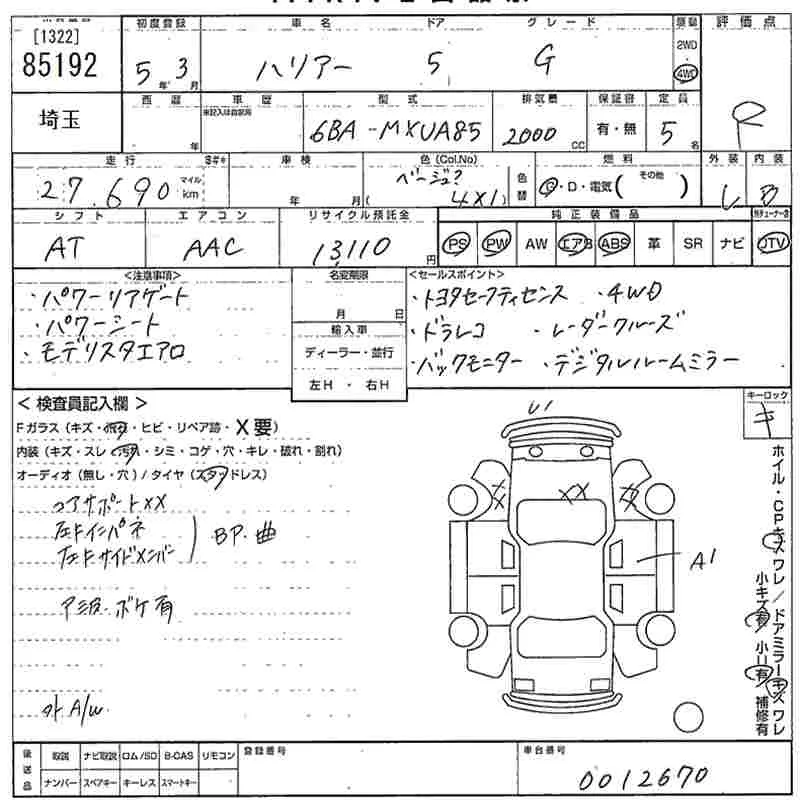 [1322]
85192
初度登録
5年 3月
車名
ハリアー
ドア
5
グレード
G
2WD
4WD
評価点
R
埼玉
西暦
年
車歴
型式
6BA-MXUA85
排気量
2000 CC
保証書
有・無
定員
5名
走行
27,690
マイル
km
車検
年 月
色(Col.No)
ベージュ?
( 4X1 )
色替
燃料
G・D・電気( その他 )
外装
内装
シフト
AT
エアコン
AAC
リサイクル預託金
13110円
純正装備品
PS PW AW エアB ABS 革 SR ナビ TV
<注意事項>
・パワーリアゲート
・パワーシート
・モデリスタエアロ
名変期限
月 日
輸入車
ディーラー・並行
左H ・ 右H
<セールスポイント>
・トヨタセーフティセンス ・4WD
・ドラレコ ・レーダークルーズ
・バックモニター ・デジタルルームミラー
<検査員記入欄>
Fガラス(キズ・飛石・ヒビ・リペア跡・X要)
内装(キズ・スレ・汚れ・シミ・コゲ・穴・キレ・破れ・割れ)
オーディオ(無し・穴)/タイヤ(スタッドレス)
コアサポートXX
左Fインパネ
左Fサイドメンバー
BP・曲
下廻ボケ有
外A/W
U1
XX
A1
キーロック
キ
ホイル・CPキズワレ/ドアミラーキズワレ
小キズ有 小U有 補修有
後送品
取説 ナビ取説 ロム/SD B-CAS リモコン
ナンバー スペアキー キーレス スマートキー
登録番号
車台番号
0012670